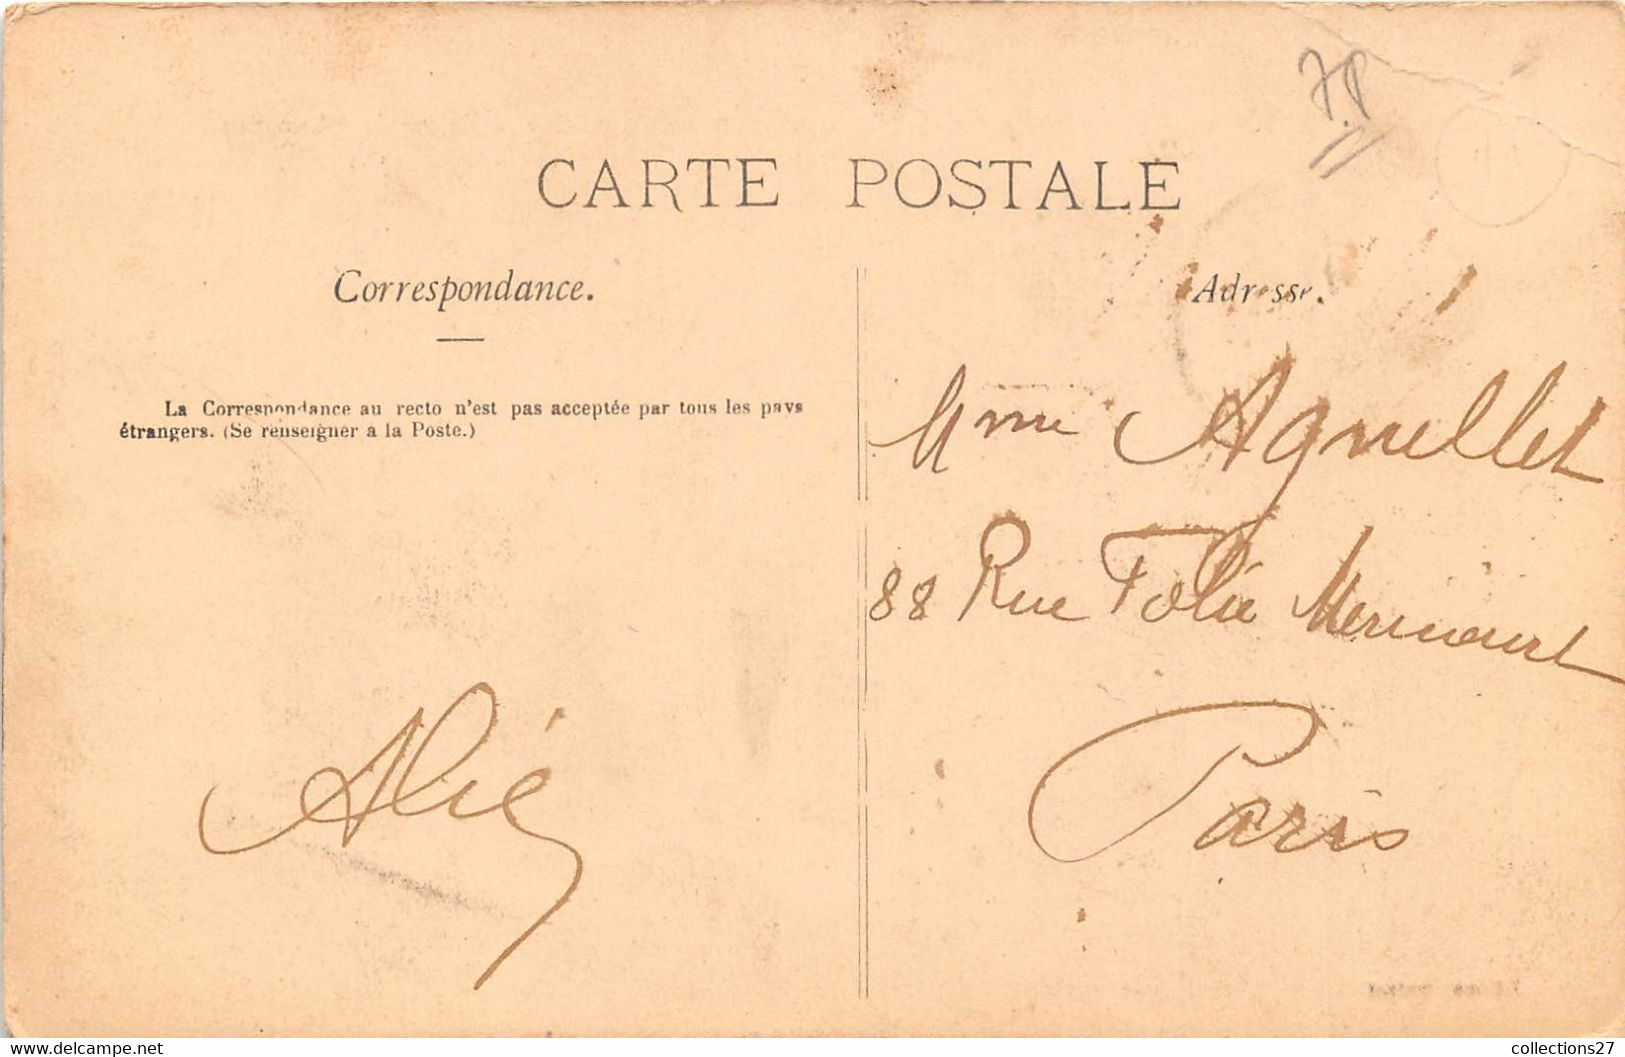 78
CARTE POSTALE
Correspondance.
Adresse.
La Correspondance au recto n'est pas acceptée par tous les pays
étrangers. (Se renseigner à la Poste.)
Mme Agnellet
88 Rue Folie Mericourt
Paris
Alié
www.delcampe.net
collections27